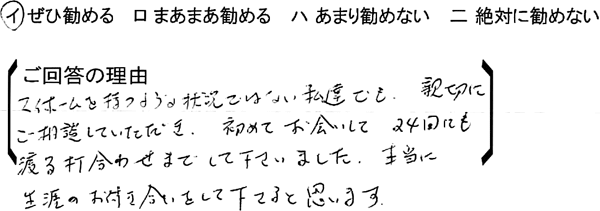 イ ぜひ勧める ロ まあまあ勧める ハ あまり勧めない ニ 絶対に勧めない
ご回答の理由
マイホームを持つような状況ではない私達でも、親切に
ご相談していただき、初めてお会いして 24回にも
渡る打合わせまでして下さいました。本当に
生涯のお付き合いをして下さると思います。